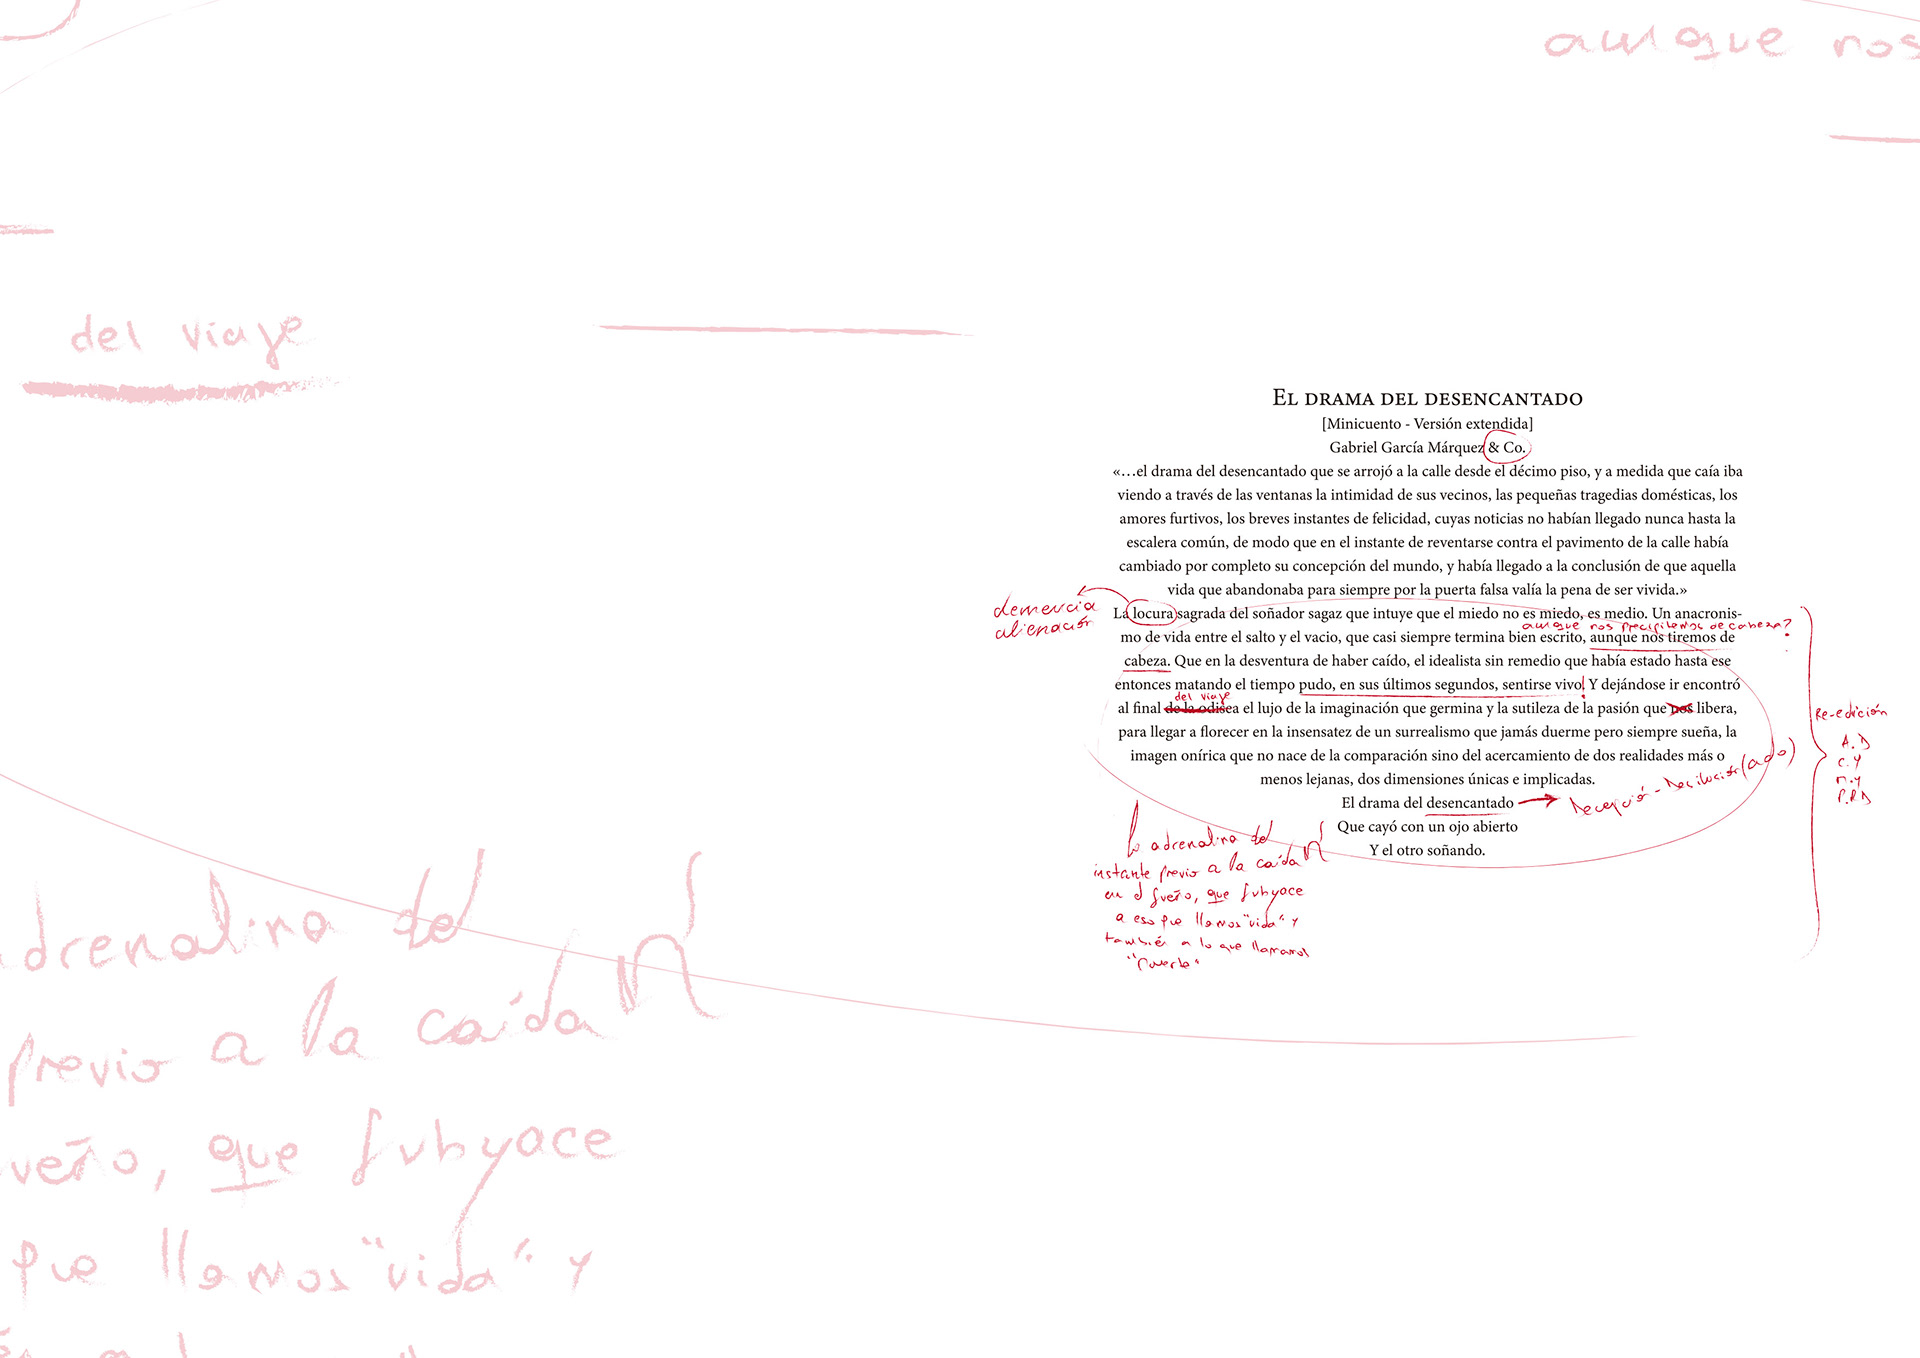 aunque nos
del viaje
EL DRAMA DEL DESENCANTADO
[Minicuento - Versión extendida]
Gabriel García Márquez & Co.
«…el drama del desencantado que se arrojó a la calle desde el décimo piso, y a medida que caía iba
viendo a través de las ventanas la intimidad de sus vecinos, las pequeñas tragedias domésticas, los
amores furtivos, los breves instantes de felicidad, cuyas noticias no habían llegado nunca hasta la
escalera común, de modo que en el instante de reventarse contra el pavimento de la calle había
cambiado por completo su concepción del mundo, y había llegado a la conclusión de que aquella
vida que abandonaba para siempre por la puerta falsa valía la pena de ser vivida.»
demencia
alienación
La locura sagrada del soñador sagaz que intuye que el miedo no es miedo, es medio. Un anacronis-
aunque nos precipitemos de cabeza?
mo de vida entre el salto y el vacio, que casi siempre termina bien escrito, aunque nos tiremos de
cabeza. Que en la desventura de haber caído, el idealista sin remedio que había estado hasta ese
entonces matando el tiempo pudo, en sus últimos segundos, sentirse vivo! Y dejándose ir encontró
del viaje
al final de la odisea el lujo de la imaginación que germina y la sutileza de la pasión que nos libera,
para llegar a florecer en la insensatez de un surrealismo que jamás duerme pero siempre sueña, la
imagen onírica que no nace de la comparación sino del acercamiento de dos realidades más o
menos lejanas, dos dimensiones únicas e implicadas.
El drama del desencantado
Decepción - Desilusión(ado)
Que cayó con un ojo abierto
Y el otro soñando.
Re-edición
A.D
C.Y
M.Y
P.R.D
La adrenalina del
instante previo a la caída
en el sueño, que subyace
a eso que llamos "vida" y
también a lo que llamamos
"muerte"
adrenalina del
previo a la caída
ueño, que subyace
que llamos "vida" y